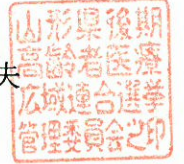 夫
山形県後期
高齢者医療
広域連合選挙
管理委員会之印